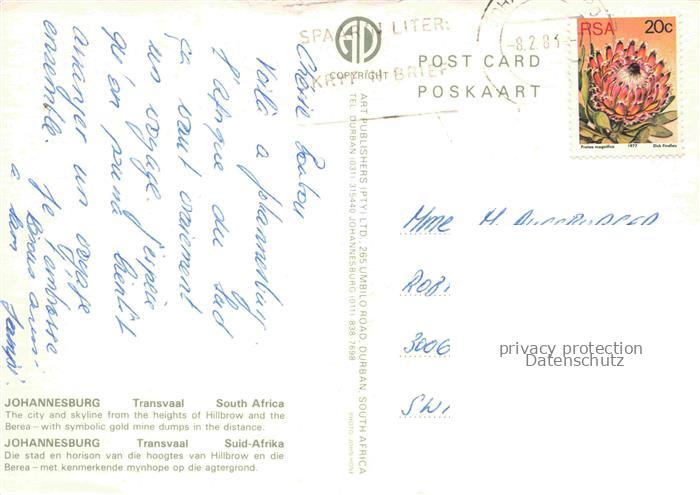 SPAAR 'N LITER:
SKRYF 'N BRIEF
-8.2.83
RSA 20c
Protea magnifica 1977 Dick Findlay
COPYRIGHT
POST CARD
POSKAART
ART PUBLISHERS (PTY) LTD., 265 UMBILO ROAD, DURBAN, SOUTH AFRICA
TEL. DURBAN (031) 315440 JOHANNESBURG (011) 838 7698
PHOTO: JOHN HONE
Chère
Voilà a Johannesburg.
L'afrique du Sud
ça vaut vraiment
un voyage. J'espère
qu'on pourra bientôt
arranger un voyage
ensemble. Je t'embrasse
Bisous aussi
a
Mme M.
3006
privacy protection
Datenschutz
SWI
JOHANNESBURG Transvaal South Africa
The city and skyline from the heights of Hillbrow and the
Berea – with symbolic gold mine dumps in the distance.
JOHANNESBURG Transvaal Suid-Afrika
Die stad en horison van die hoogtes van Hillbrow en die
Berea – met kenmerkende mynhope op die agtergrond.